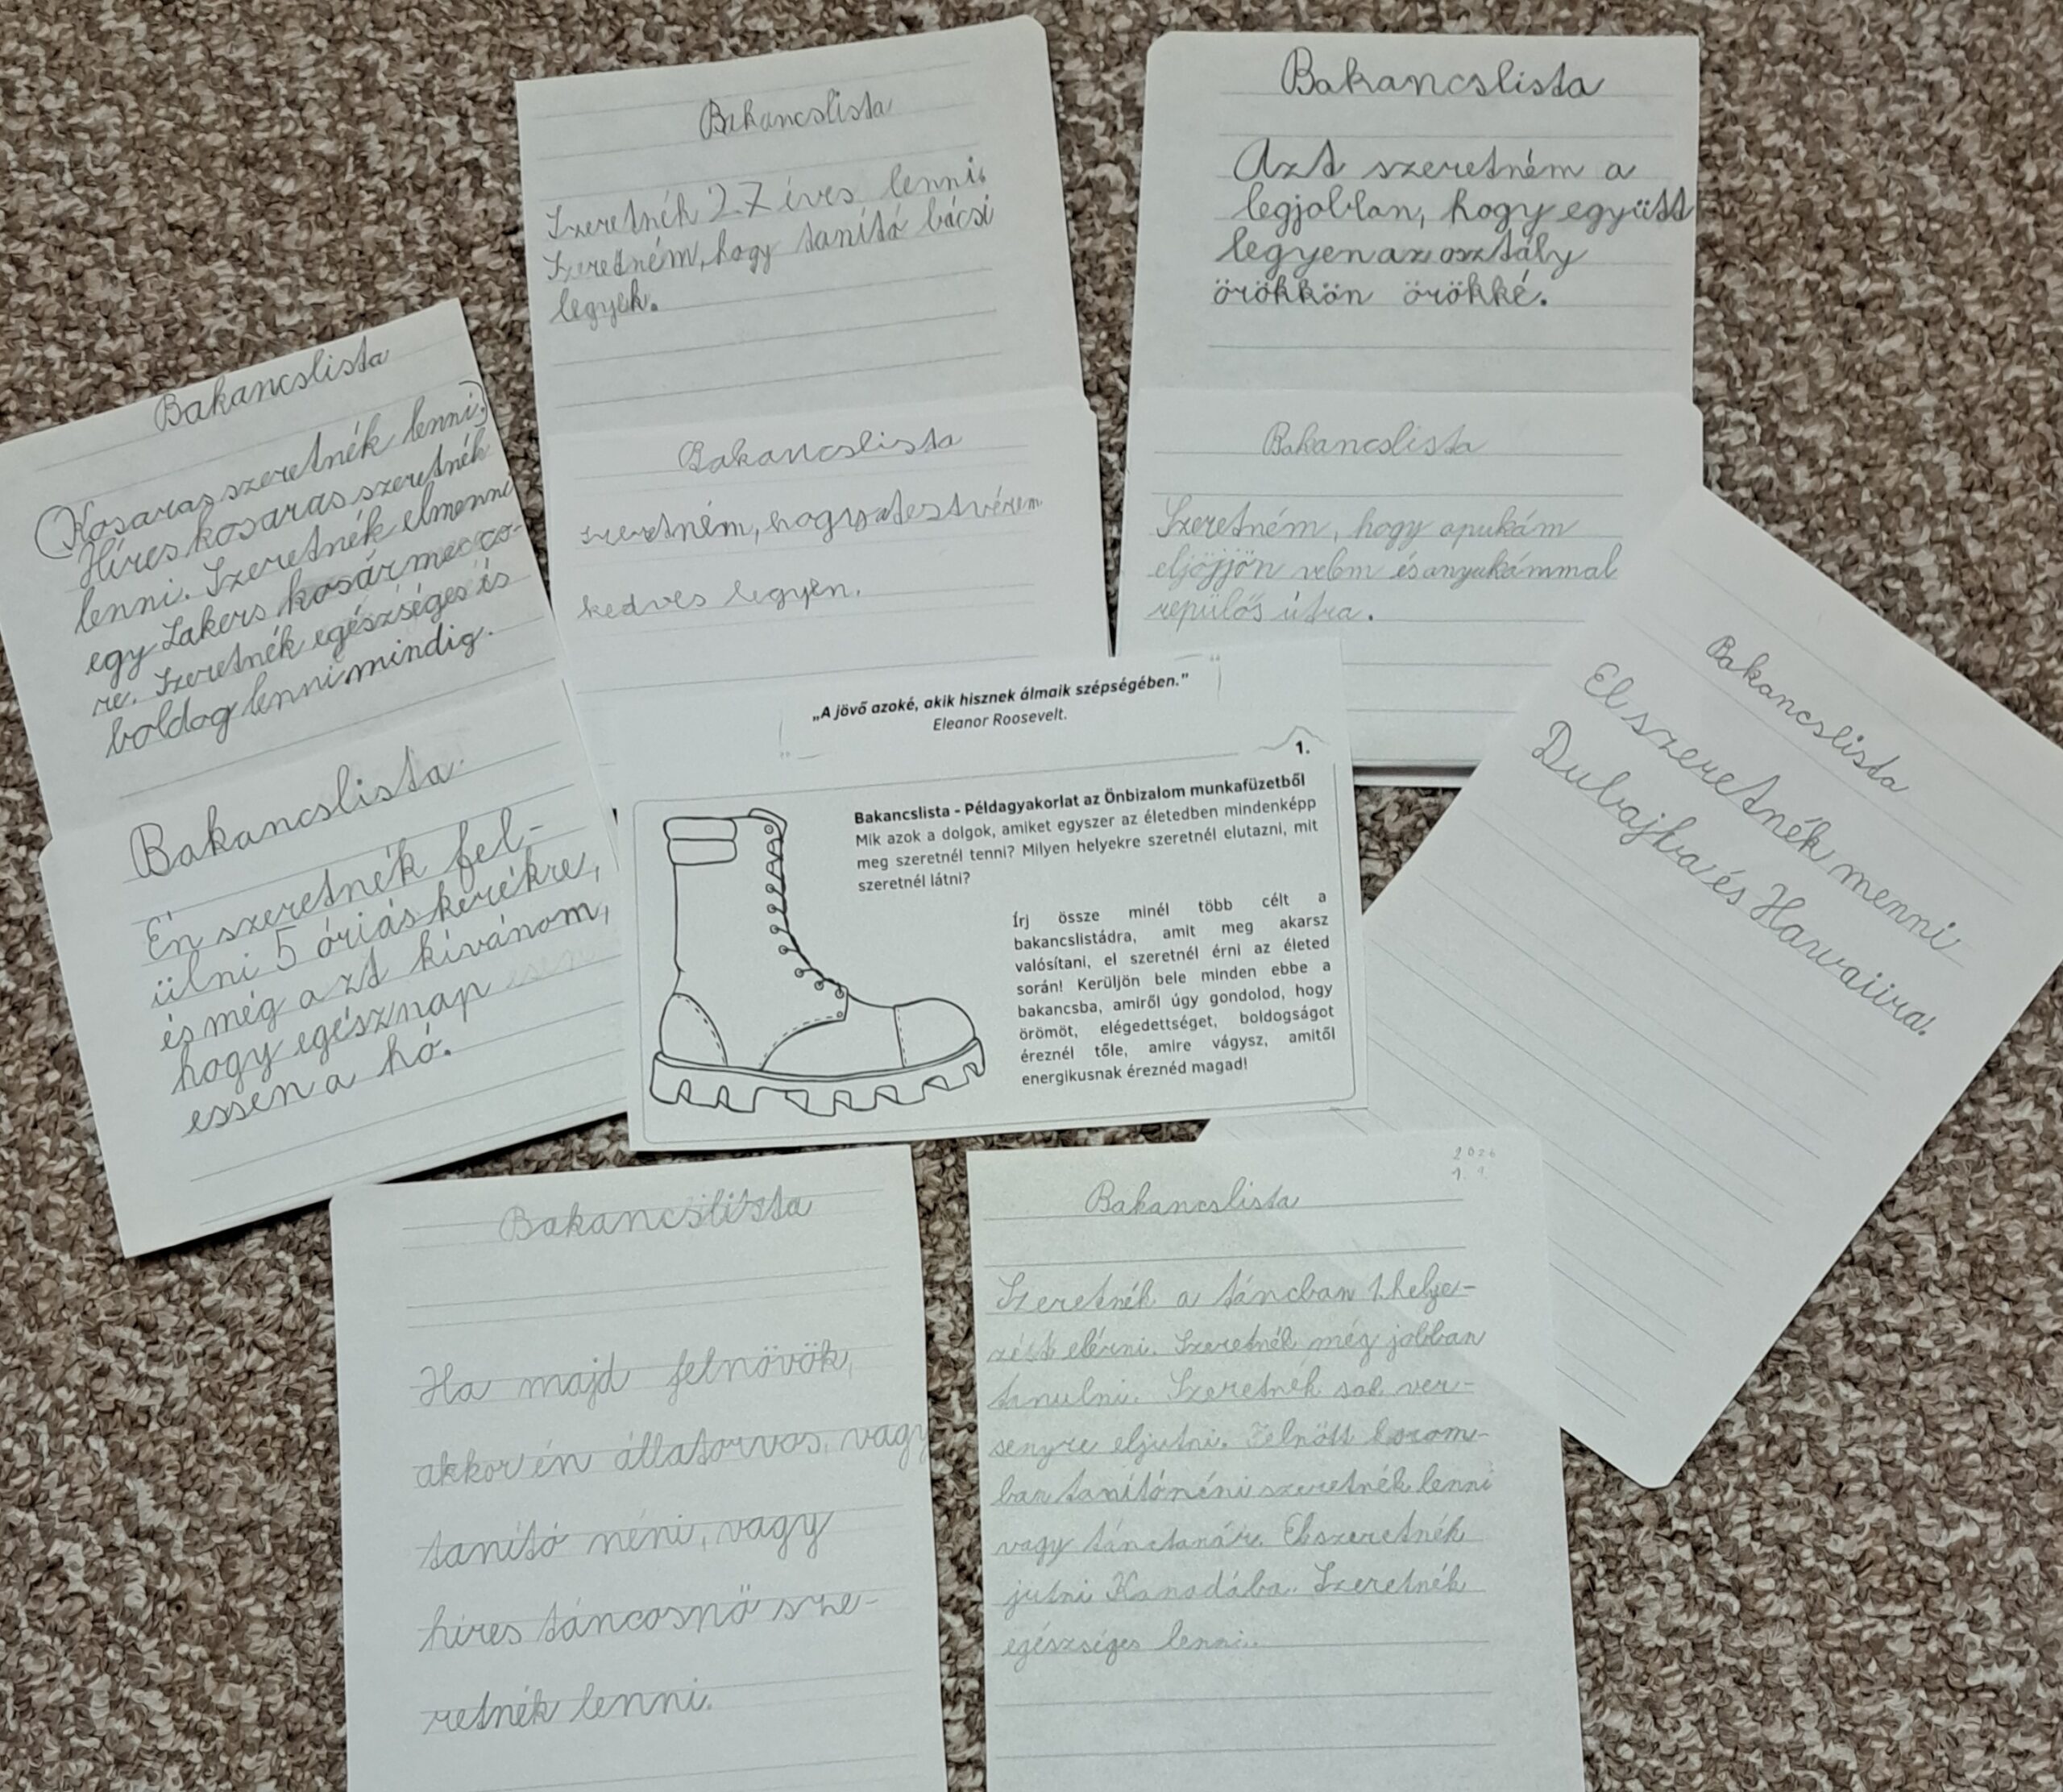 Bakancslista
Szeretnék 27 éves lenni.
Szeretném, hogy tanító bácsi
legyek.
Bakancslista
Azt szeretném a
legjobban, hogy együtt
legyen az osztály
örökkön örökké.
Bakancslista
(Kosaras szeretnék lenni.)
Híres kosaras szeretnék
lenni. Szeretnék elmenni
egy Lakers kosár mecco-
re. Szeretnék egészséges és
boldog lenni mindig.
Bakancslista
szeretném, hogy a testvérem
kedves legyen.
Bakancslista
Szeretném, hogy apukám
eljöjjön velem és anyukámmal
repülős útra.
Bakancslista
El szeretnék menni
Dubajba és Hawaiira.
Bakancslista
Én szeretnék fel-
ülni 5 óriás kerékre,
és még azt kívánom,
hogy egész nap esen
essen a hó.
„A jövő azoké, akik hisznek álmaik szépségében.”
Eleanor Roosevelt.
1.
Bakancslista - Példagyakorlat az Önbizalom munkafüzetből
Mik azok a dolgok, amiket egyszer az életedben mindenképp
meg szeretnél tenni? Milyen helyekre szeretnél elutazni, mit
szeretnél látni?
Írj össze minél több célt a
bakancslistádra, amit meg akarsz
valósítani, el szeretnél érni az életed
során! Kerüljön bele minden ebbe a
bakancsba, amiről úgy gondolod, hogy
örömöt, elégedettséget, boldogságot
éreznél tőle, amire vágysz, amitől
energikusnak éreznéd magad!
Bakancslista
Ha majd felnövök,
akkor én állatorvos, vagy
tanító néni, vagy
híres táncosnő sze-
retnék lenni.
Bakancslista
Szeretnék a táncban 1. helye-
zést elérni. Szeretnék még jobban
tanulni. Szeretnék sok ver-
senyre eljutni. Felnőtt korom-
ban tanító néni szeretnék lenni
vagy tánctanár. El szeretnék
jutni Kanadába. Szeretnék
egészséges lenni.